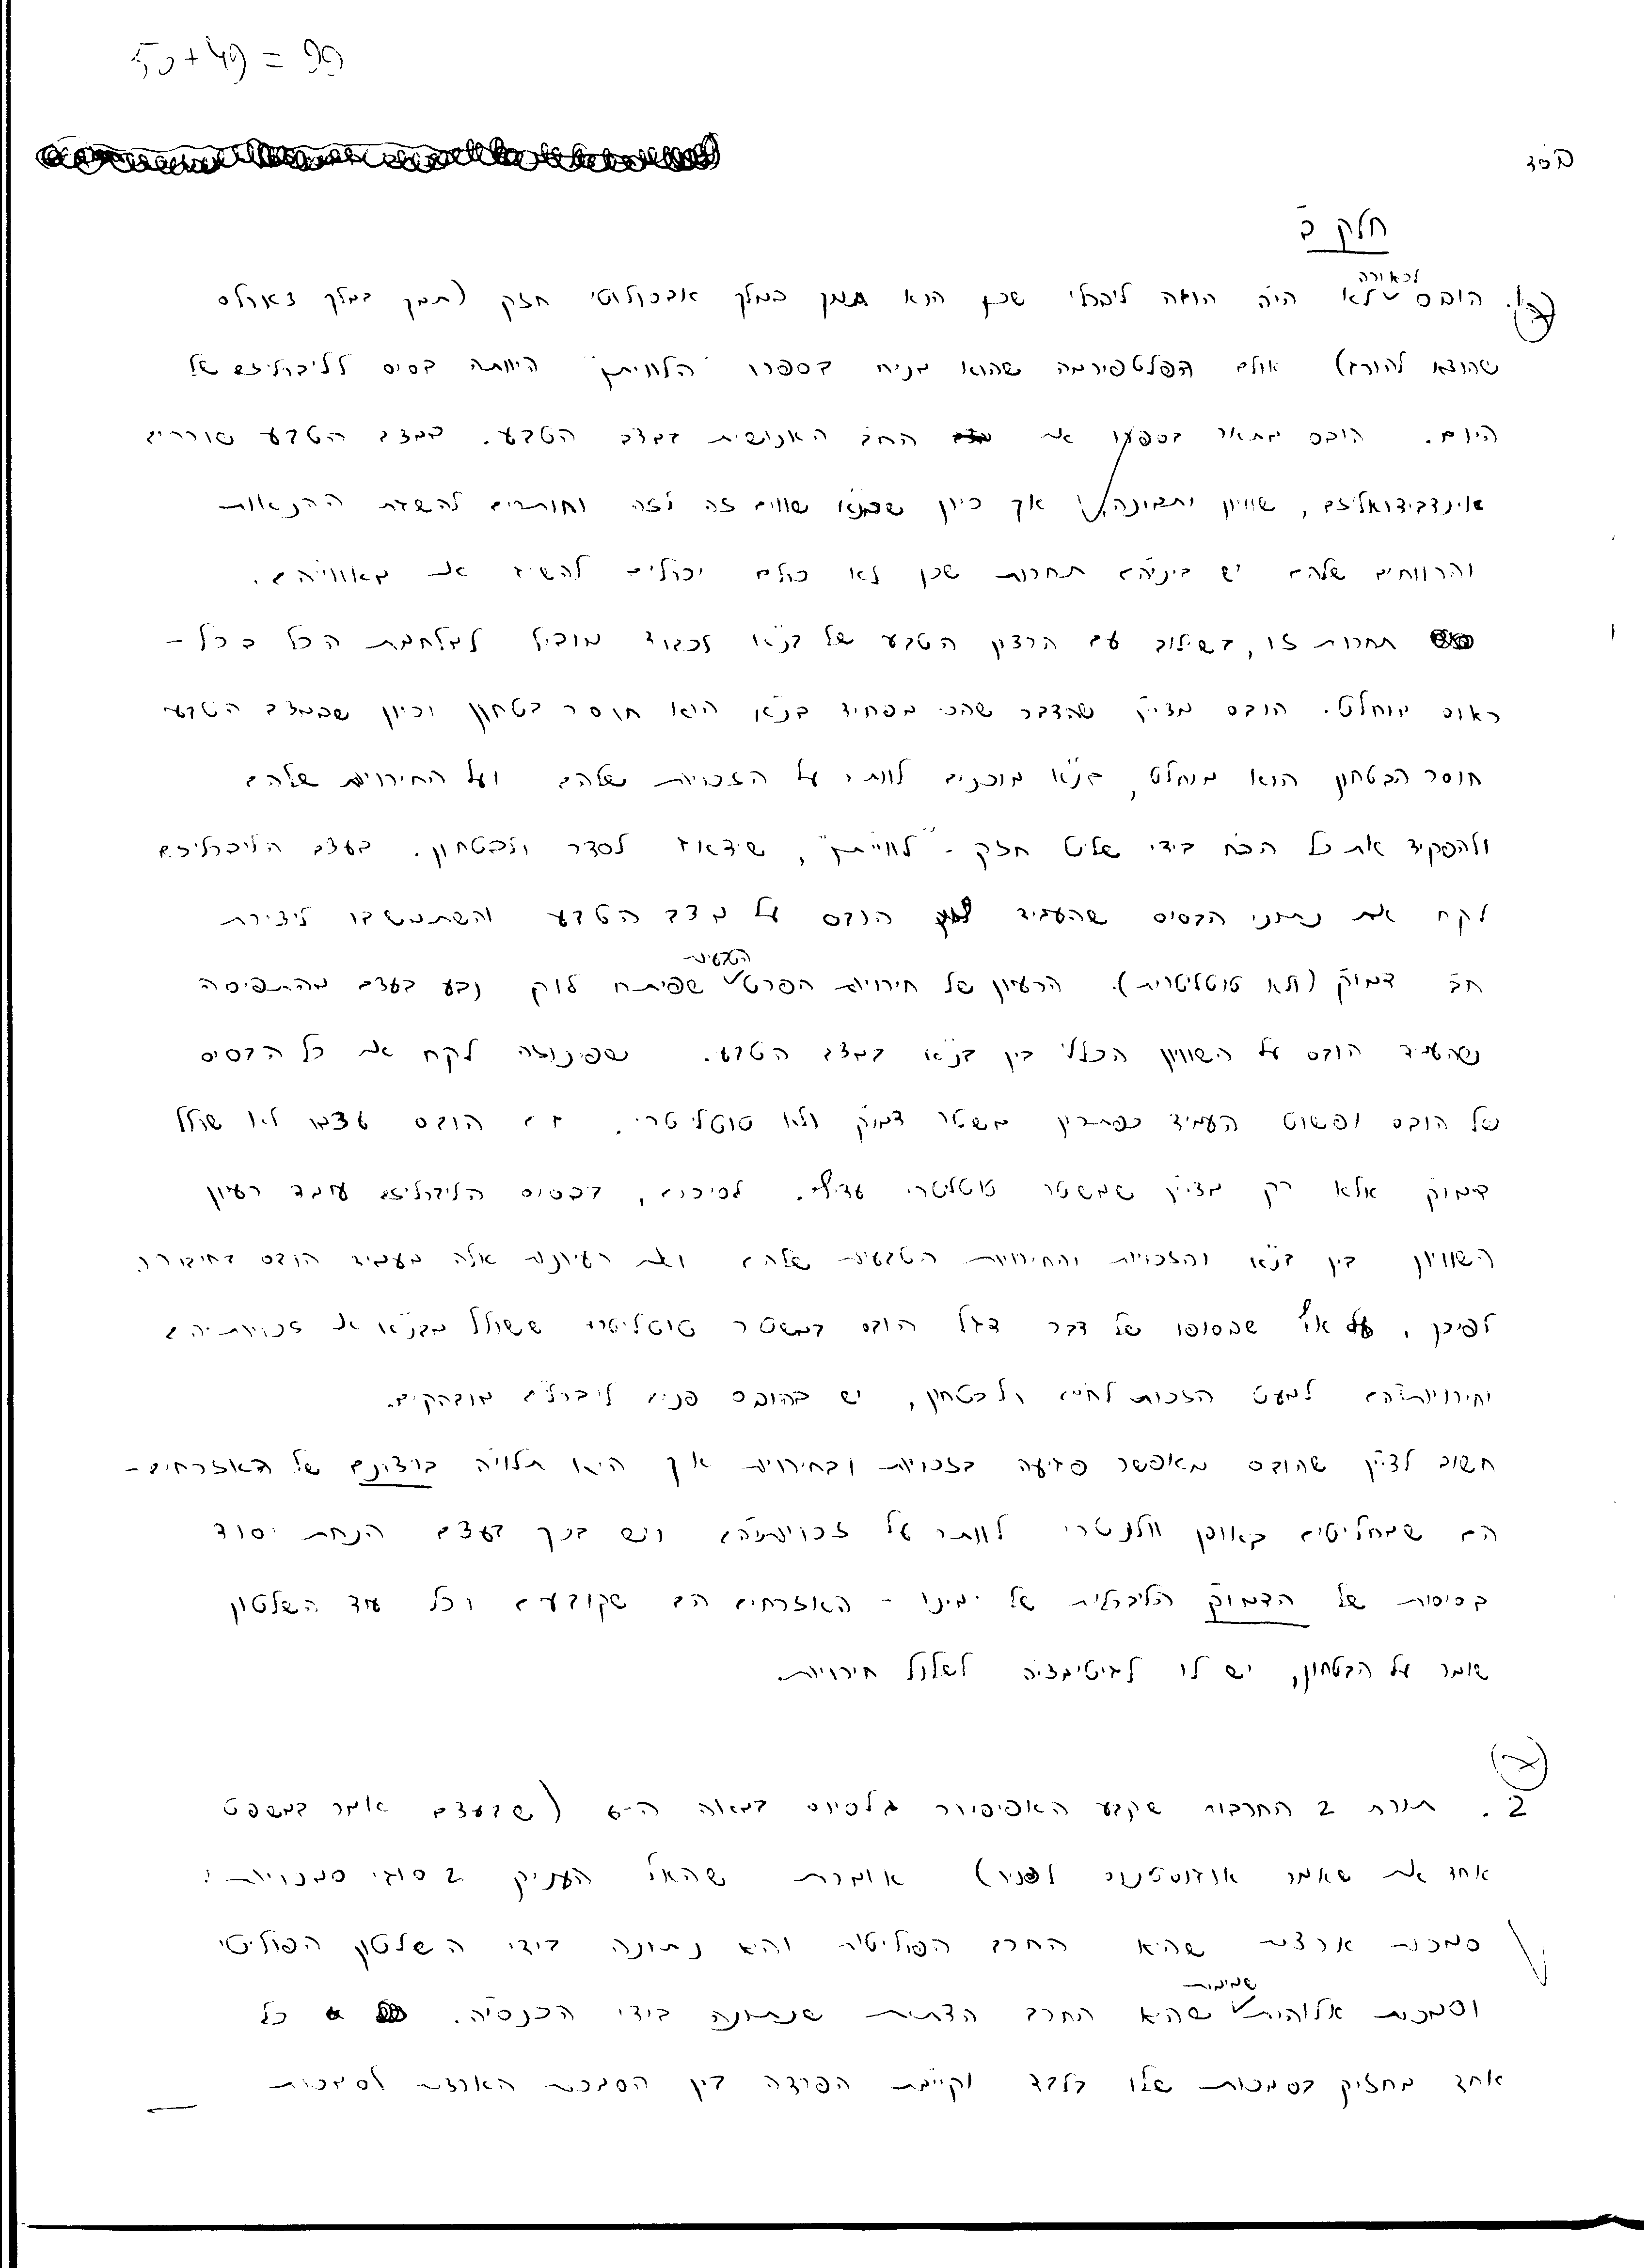 50+49=99
בס"ד
חלק ב'
לכאורה
1. הובס לא היה הוגה ליברלי שכן הוא תמך במלך אבסולוטי חזק (תמך במלך צ'ארלס
שהוצא להורג) אולם הפלטפורמה שהוא מניח בספרו "הלוויתן" היוותה בסיס לליברליזם של
היום. הובס מתאר בספרו את החב' האנושית במצב הטבע. במצב הטבע שוררים
אינדבידואליזם, שוויון ותבונה, אך כיון שבנ"א שווים זה לזה וחותרים להשגת ההנאות
והרווחים שלהם יש ביניהם תחרות שכן לא כולם יכולים להשיג את מאווייהם.
תחרות זו, בשילוב עם הרצון הטבעי של בנ"א לכבוד מוביל למלחמת הכל בכל -
כאוס מוחלט. הובס מציין שהדבר שהכי מפחיד בנ"א הוא חוסר בטחון וכיון שבמצב הטבעי
חוסר הבטחון הוא מוחלט, בנ"א מוכנים לוותר על הזכויות שלהם ועל החירויות שלהם
ולהפקיד את כל הכח בידי שליט חזק - "לווייתן", שידאג לסדר ולבטחון. בעצם הליברליזם
לקח את נתוני הבסיס שהעמיד הובס על מצב הטבע והשתמש בו ליצירת
הטבעיות
חב' דמוק' (ולא טוטליטרית). הרעיון של חירויות הפרט שפיתח לוק נבע בעצם מהתפיסה
שהעמיד הובס על השוויון הכללי בין בנ"א במצב הטבע. שפינוזה לקח את כל הבסיס
של הובס ופשוט העמיד כפתרון משטר דמוק' ולא טוטליטרי. גם הובס עצמו לא שולל
דמוק' אלא רק מציין שמשטר טוטליטרי עדיף. לסיכום, בבסיס הליברליזם עומד רעיון
השוויון בין בנ"א והזכויות והחירויות הטבעיות שלהם ואת רעיונות אלה מעמיד הובס בחיבורו.
לפיכך, אף שבסופו של דבר דגל הובס במשטר טוטליטרי ששולל מבנ"א את זכויותיהם
וחירויותיהם למעט הזכות לחיים ולבטחון, יש בהובס פנים ליברליים מובהקים.
חשוב לציין שהובס מאפשר פגיעה בזכויות ובחירויות אך היא תלויה ברצונם של האזרחים -
הם שמחליטים באופן וולנטרי לוותר על זכויותיהם ויש בכך בעצם הנחת יסוד
בסיסית של הדמוק' הליברלית של ימינו - האזרחים הם שקובעים וכל עוד השלטון
שומר על הבטחון, יש לו לגיטימציה לשלול חירויות.
2. תורת 2 החרבות שקבע האפיפיור גלסיוס במאה ה-5 (שבעצם אומר במשפט
אחד את שאמר אוגוסטינוס לפניו) אומרת שהאל העניק 2 סוגי סמכויות:
סמכות ארצית שהיא החרב הפוליטית והיא נתונה בידי השלטון הפוליטי
שמימית
וסמכות אלוהית שהיא החרב הדתית שנתונה בידי הכנסיה. כל
אחד מחזיק בסמכות שלו בלבד וקיימת הפרדה בין הסמכות הארצית לסמכות